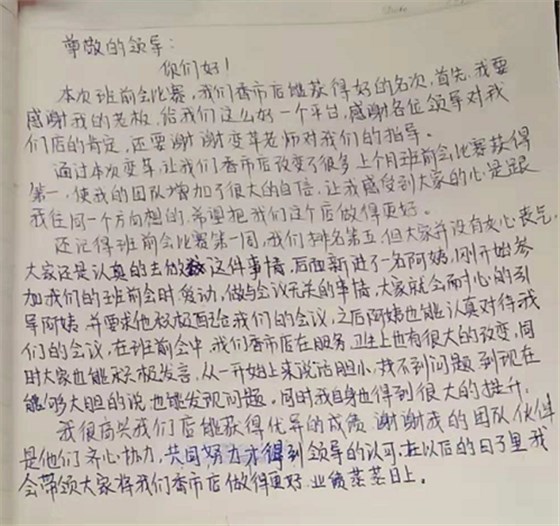 尊敬的领导：
你们好！
本次班前会比赛，我们香市店能获得好的名次，首先，我要
感谢我的老板，给我们这么好一个平台，感谢各位领导对我
们店的肯定，还要谢谢变革老师对我们的指导。
通过本次变革，让我们香市店改变了很多，上个月班前会比赛获得
第一，使我的团队增加了很大的自信，让我感受到大家的心是跟
我往同一个方向想的，希望把我们这个店做得更好。
还记得班前会比赛第一周，我们排名第五，但大家并没有灰心丧气，
大家还是认真的去做这件事情，后面新进了一名阿姨，刚开始参
加我们的班前会时爱动，做与会议无关的事情，大家就会耐心的引
导阿姨，并要求他积极配合我们的会议，之后阿姨也能认真对待我
们的会议，在班前会中，我们香市店在服务、卫生上也有很大的改变，同
时大家也能积极发言，从一开始上来说话胆小，找不到问题到现在
能够大胆的说，也能发现问题，同时我自身也得到很大的提升。
我很高兴我们店能获得优异的成绩，谢谢我的团队伙伴
是他们齐心协力，共同努力才得到领导的认可，在以后的日子里我
会带领大家将我们香市店做得更好，业绩蒸蒸日上。